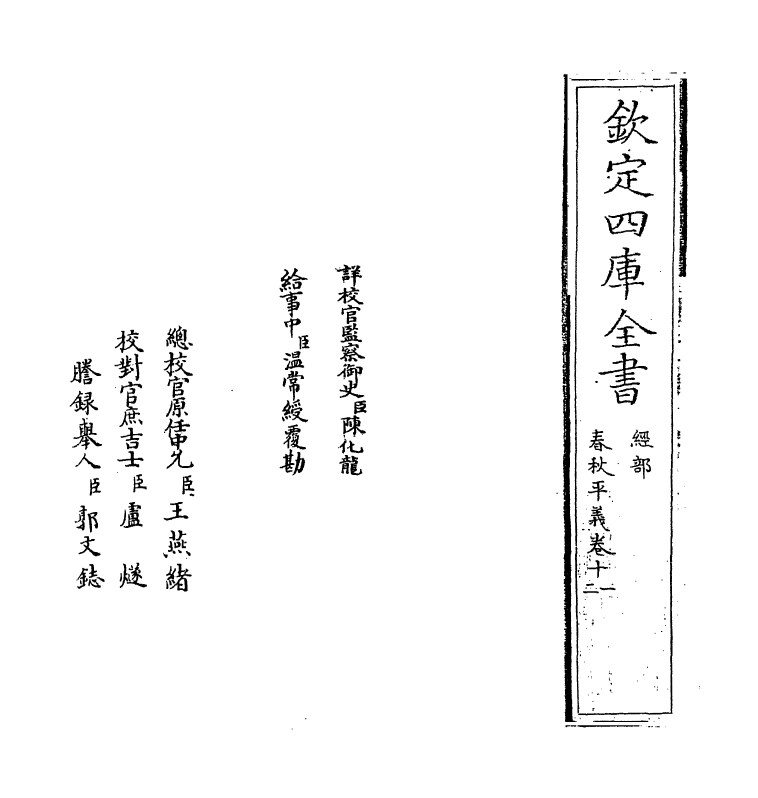 欽定四庫全書
經部
春秋平義卷十一二
詳校官監察御史臣陳化龍
給事中臣溫常綬覆勘
總校官原任中允臣王燕緒
校對官庶吉士臣盧燧
謄錄舉人臣郭文鋕